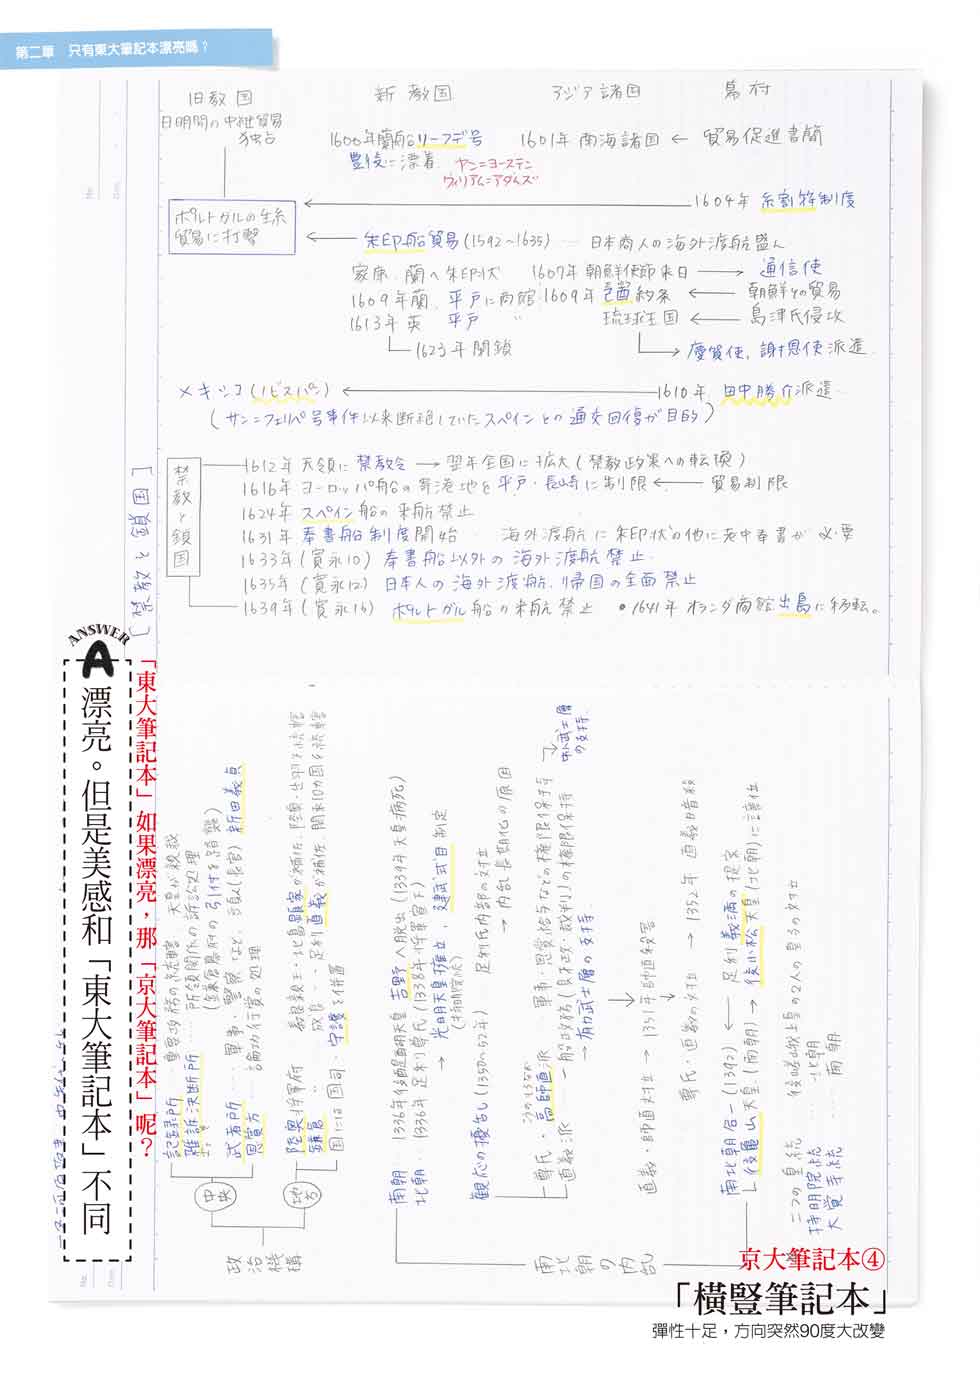 第二章　只有東大筆記本漂亮嗎？
旧教国
新教国
アジア諸国
幕府
日明間の中継貿易
独占
1600年蘭船リーフデ号
豊後に漂着
ヤン=ヨーステン
ウィリアム=アダムズ
1601年 南海諸国 ← 貿易促進書簡
1604年 糸割符制度
ポルトガルの生糸
貿易に打撃
朱印船貿易(1592～1635) … 日本商人の海外渡航盛ん
家康、蘭へ朱印状
1607年 朝鮮使節来日 → 通信使
1609年蘭、平戸に商館
1609年 己酉約条 ← 朝鮮との貿易
1613年 英 平戸 〃
琉球王国 ← 島津氏侵攻
1623年閉鎖
慶賀使、謝恩使派遣
メキシコ(ノビスパン)
1610年、田中勝介派遣
(サン=フェリペ号事件以来断絶していたスペインとの通交回復が目的)
禁教と鎖国
1612年 天領に禁教令 → 翌年全国に拡大(禁教政策への転換)
1616年 ヨーロッパ船の寄港地を平戸・長崎に制限 ← 貿易制限
1624年 スペイン船の来航禁止
1631年 奉書船制度開始　海外渡航に朱印状の他に老中奉書が必要
1633年(寛永10) 奉書船以外の海外渡航禁止
1635年(寛永12) 日本人の海外渡航、帰国の全面禁止
1639年(寛永16) ポルトガル船の来航禁止 ・1641年 オランダ商館出島に移転。
[禁教と鎖国]
ANSWER
A
漂亮。但是美感和「東大筆記本」不同
「東大筆記本」如果漂亮，那「京大筆記本」呢？
政治機構
中央
記録所
雑訴決断所 … 所領関係の訴訟処理
(鎌倉幕府の引付を踏襲)
武者所 … 軍事・警察など、頭人(長官)新田義貞
恩賞方 … 論功行賞の処理
地方
陸奥将軍府
鎌倉 〃
国には国司・守護を併置
南北朝の内乱
南朝
1336年後醍醐天皇 吉野へ脱出 (1339年天皇病死)
北朝
1336年 足利尊氏 (1338年将軍宣下)
→ 光明天皇擁立、建武式目制定
観応の擾乱(1350～52年)　足利氏内部の対立
→ 内乱長期化の原因
尊氏・高師直派 … 軍事・恩賞給与などの権限保持
直義派
直義・師直対立 → 1351年師直殺害
尊氏・直義の対立 → 1352年 直義毒殺
南北朝合一(1392) ← 足利義満の提案
後亀山天皇(南朝) → 後小松天皇(北朝)に譲位
二つの皇統
持明院統 … 北朝
大覚寺統 … 南朝
京大筆記本④
「橫豎筆記本」
彈性十足，方向突然90度大改變